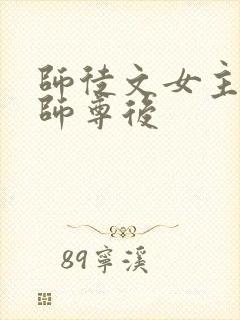 師徒文女主
師尊後
89寧溪